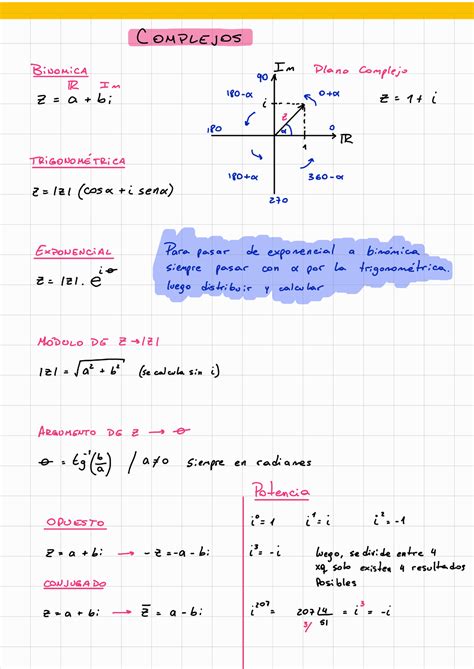 COMPLEJOS
BINOMICA
IR Im
z = a + bi
Im
90
Plano Complejo
180-α
0+α
i
z
z = 1 + i
180
α
0
1
IR
180+α
360-α
270
TRIGONOMÉTRICA
z = |z| (cos α + i sen α)
EXPONENCIAL
z = |z| · e^{iθ}
Para pasar de exponencial a binómica
siempre pasar con α por la trigonométrica.
luego distribuir y calcular
MÓDULO DE Z → |z|
|z| = √(a² + b²) (se calcula sin i)
ARGUMENTO DE Z → θ
θ = tg⁻¹(b/a) / a≠0 siempre en radianes
OPUESTO
z = a + bi → -z = -a - bi
CONJUGADO
z = a + bi → z̅ = a - bi
Potencia
i⁰ = 1 i¹ = i i² = -1
i³ = -i luego, se divide entre 4
xq solo existen 4 resultados
Posibles
i²⁰⁷ = 207 |4 = i³ = -i
3/ 51